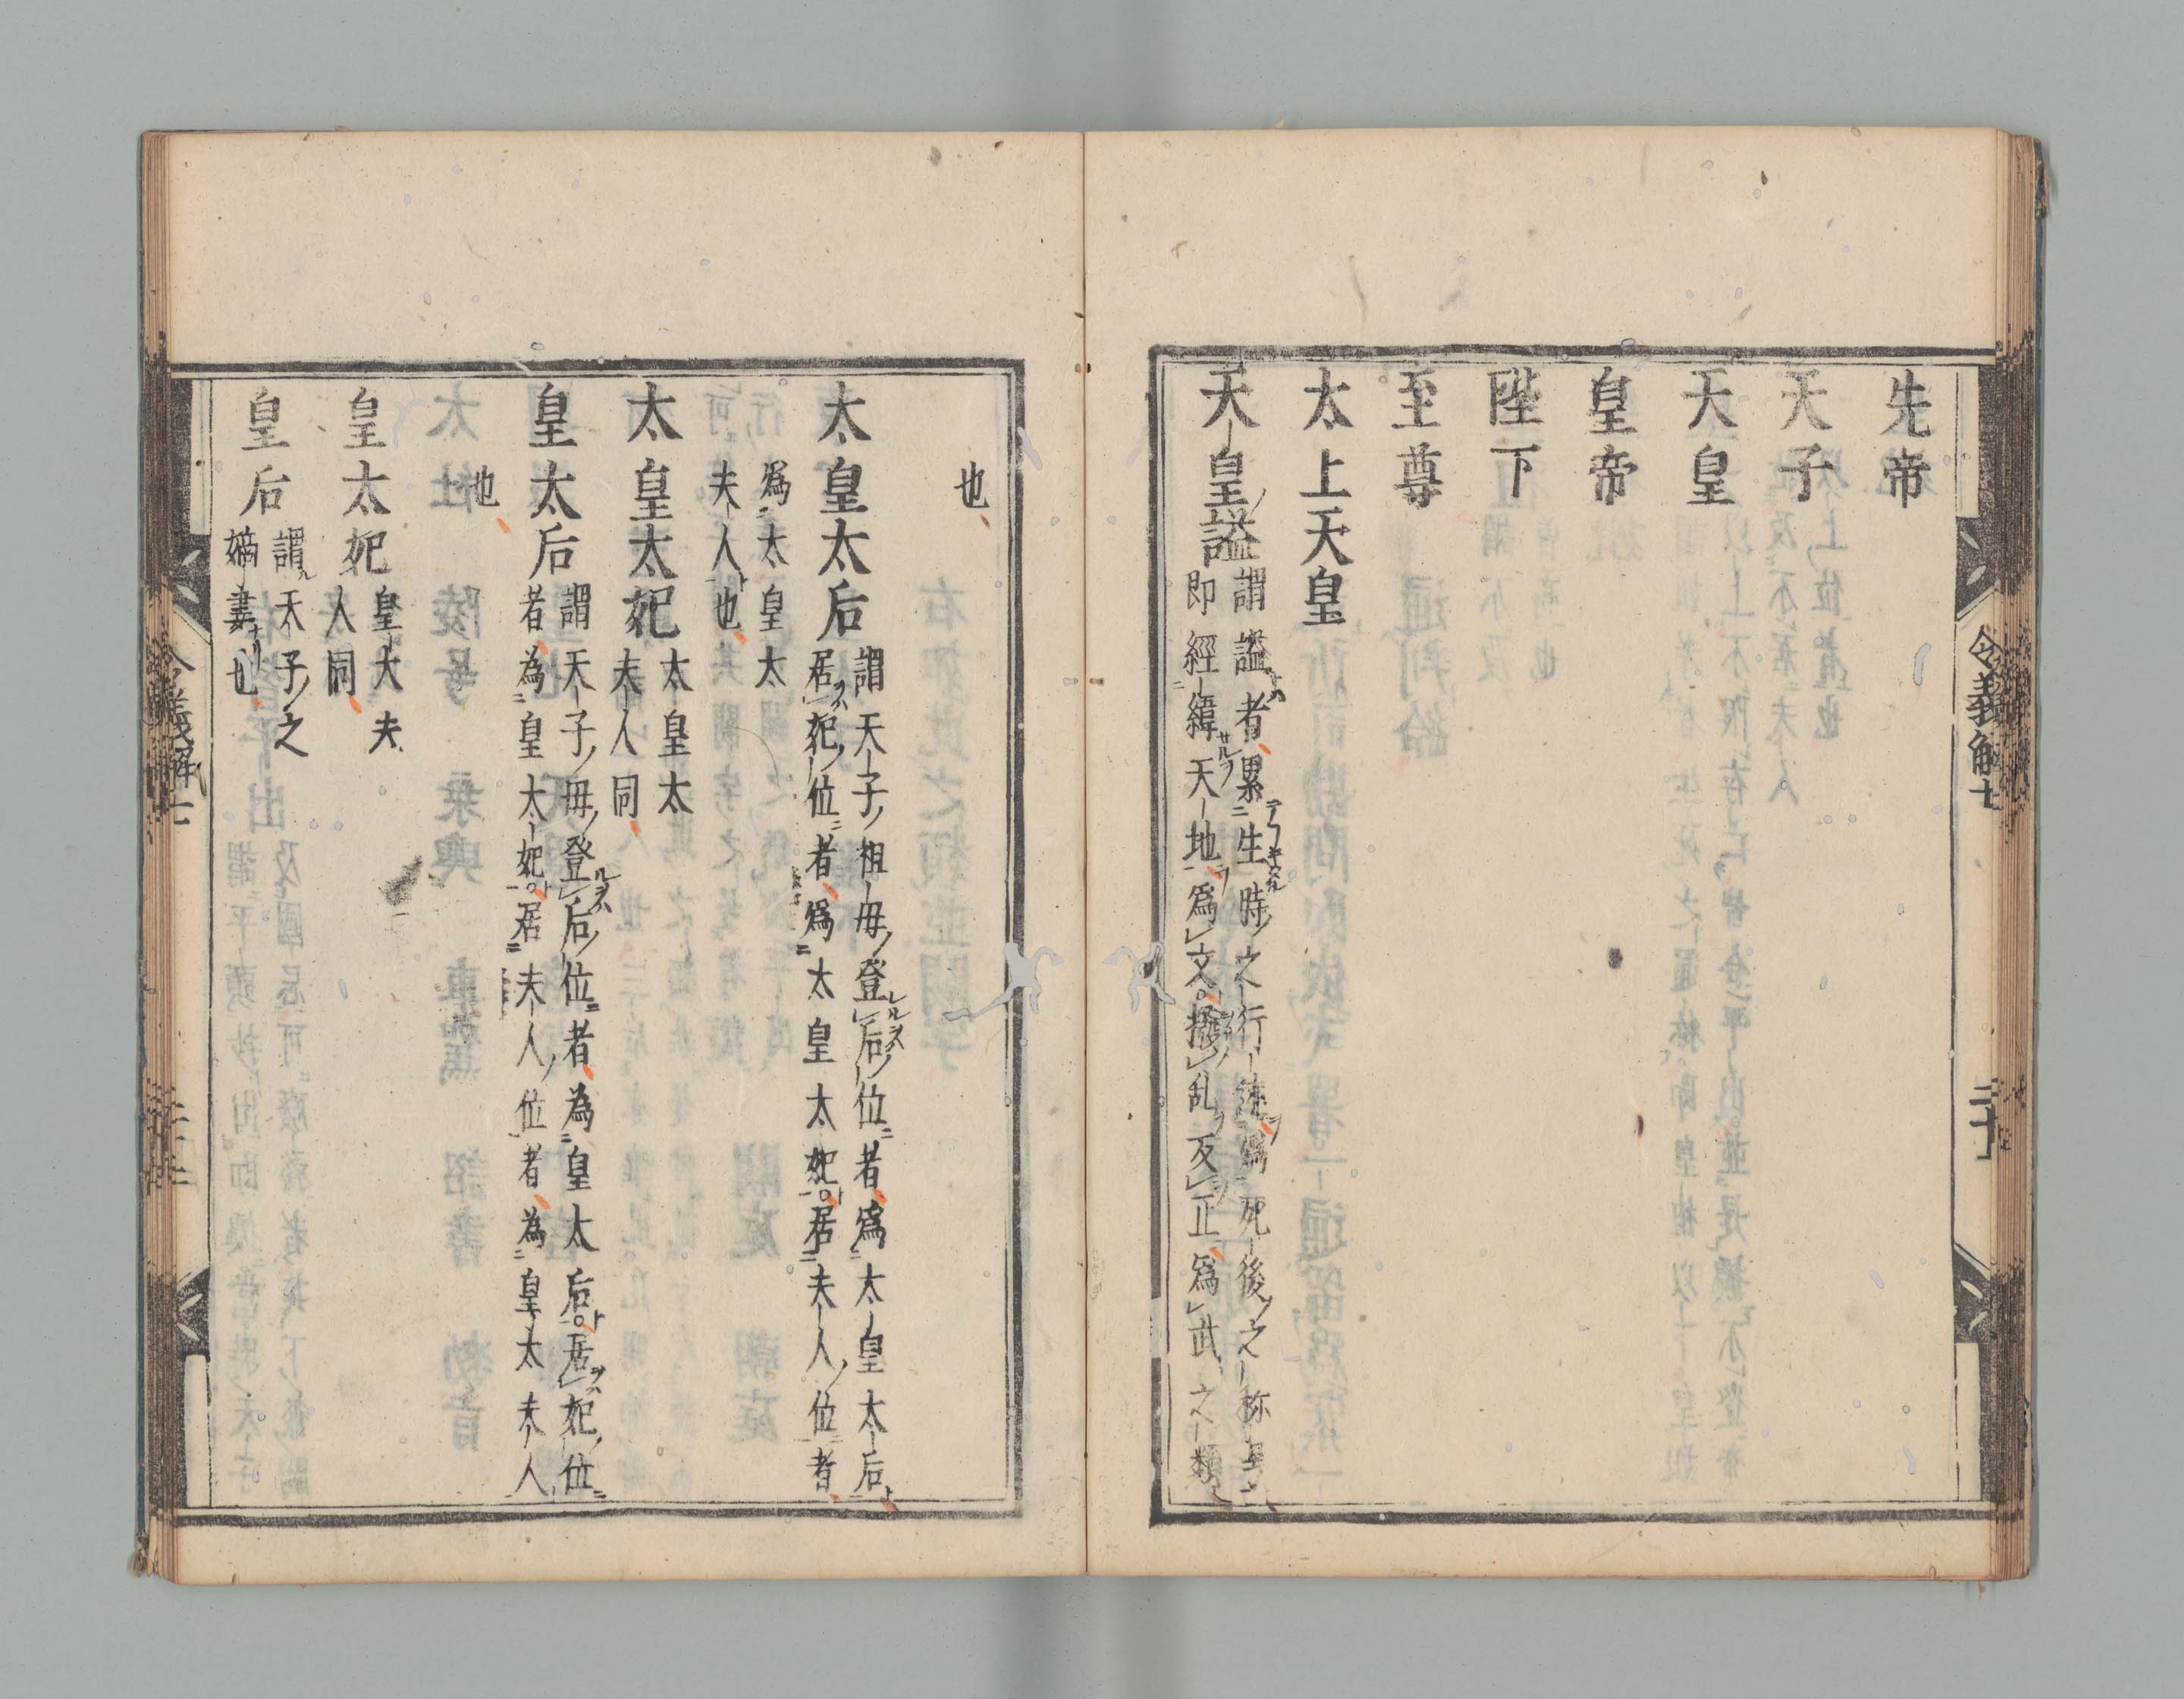 先帝
天子
天皇
皇帝
陛下
至尊
太上天皇
天皇謚
謂謚者累生時之行迹為死後之称号
即經緯天地爲文撥乱反正爲武之類
令義解七
二十
也
太皇太后
謂天子祖母登后位者爲太皇太后
居妃位者爲太皇太妃居夫人位者
爲太皇太
夫人也
太皇太妃
太皇太
夫人同
皇太后
謂天子母登后位者為皇太后居妃位
者為皇太妃居夫人位者為皇太夫人
也
皇太妃
皇大夫
人同
皇后
謂天子之
嫡妻也
令義解七